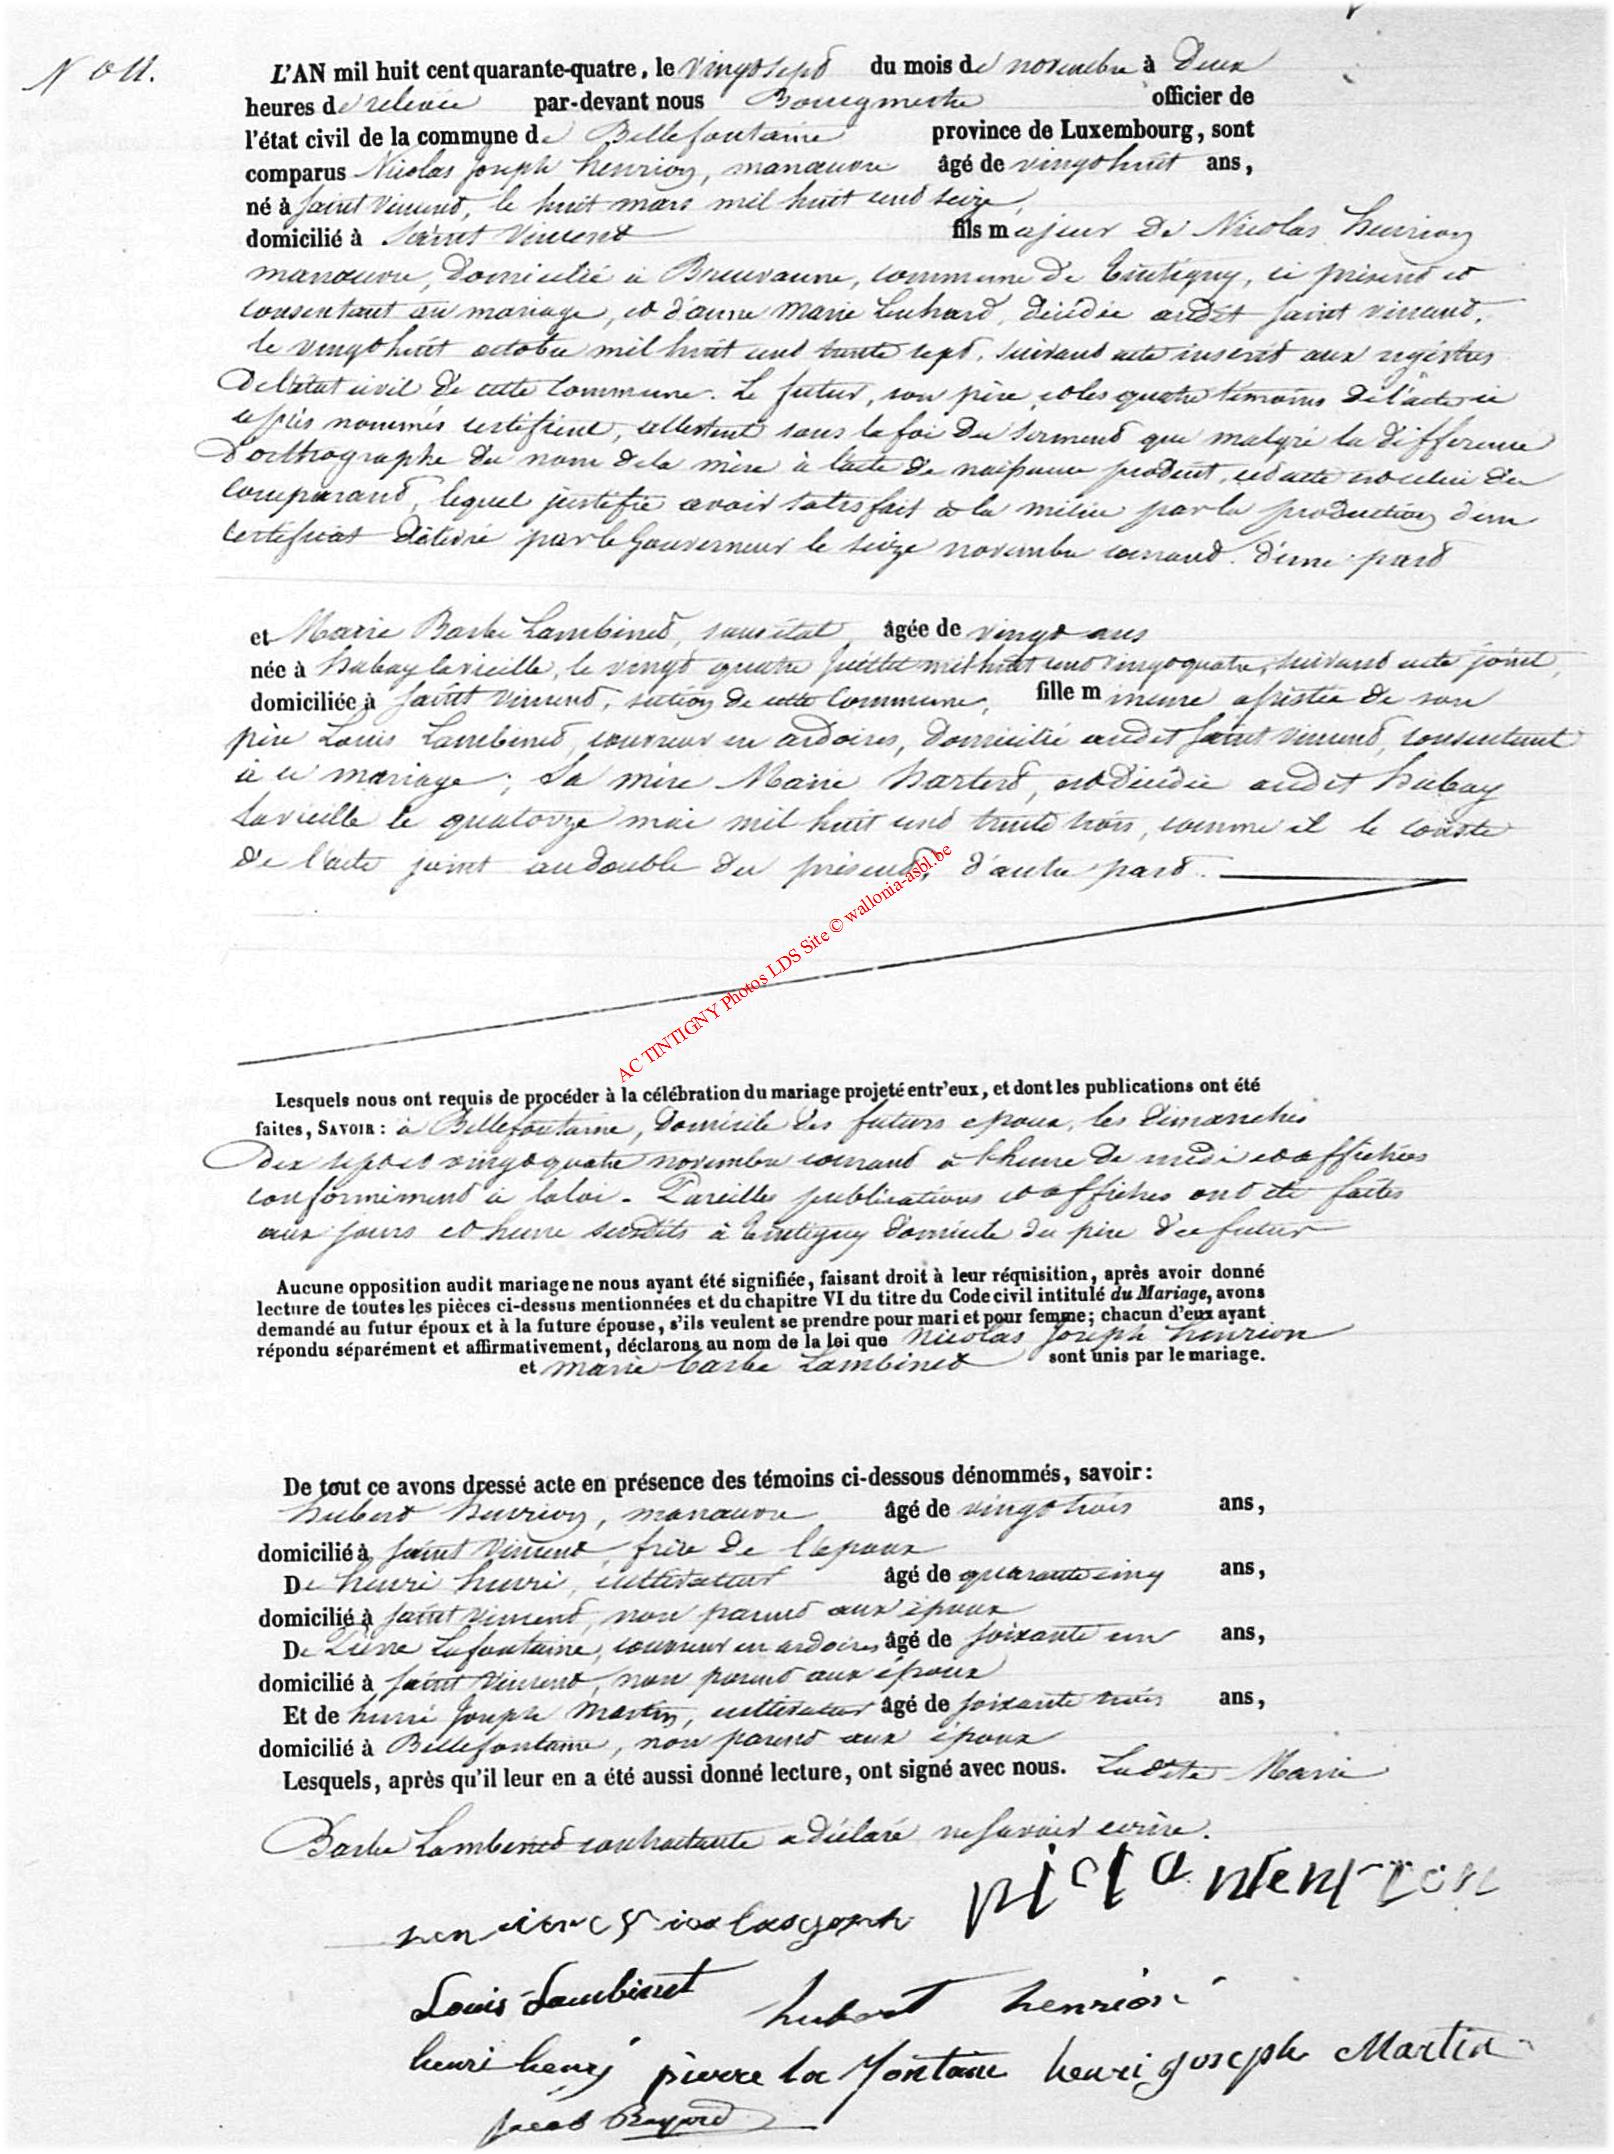 N° 11.
L'AN mil huit cent quarante-quatre, le vingt sept du mois de novembre à Deux
heures de relevée par-devant nous Bourgmestre officier de
l'état civil de la commune de Bellefontaine province de Luxembourg, sont
comparus Nicolas Joseph henrion, manœuvre âgé de vingt huit ans,
né à Saint Vincent, le huit mars mil huit cent seize,
domicilié à Saint Vincent fils majeur de Nicolas henrion
manœuvre, domicilié à Breuvanne, commune de Tintigny, ci présent et
consentant au mariage, et d'anne Marie Lenhard, décédée audit saint vincent,
le vingt huit octobre mil huit cent trente sept, suivant acte inscrit aux registres
de l'état civil de cette commune. Le futur, son père, et les quatre témoins de l'acte ci
après nommés certifient, attestent sous la foi du serment que malgré la différence
d'orthographe du nom de la mère à l'acte de naissance produit, ledit acte est celui du
comparant, lequel justifie avoir satisfait à la milice par la production d'un
certificat délivré par le Gouverneur le seize novembre courant. d'une part
et Marie Barbe Lambinet, sans état, âgée de vingt ans
née à habay la vieille, le vingt quatre Juillet mil huit cent vingt quatre, suivant acte joint,
domiciliée à Saint Vincent, section de cette commune, fille mineure assistée de son
père Louis Lambinet, couvreur en ardoises, domicilié audit Saint Vincent, consentant
à ce mariage; Sa mère Marie hartert, est décédée audit habay
la vieille le quatorze mai mil huit cent trente trois, comme il le conste
de l'acte joint au double du présent, d'autre part.
AC TINTIGNY Photos LDS Site © wallonia-asbl.be
Lesquels nous ont requis de procéder à la célébration du mariage projeté entr'eux, et dont les publications ont été
faites, SAVOIR : à Bellefontaine, domicile des futurs epoux, les dimanches
dix sept et vingt quatre novembre courant à l'heure de midi et affichées
conformément à la loi. Pareilles publications et affiches ont été faites
aux jours et heure susdits à Tintigny domicile du père du futur
Aucune opposition audit mariage ne nous ayant été signifiée, faisant droit à leur réquisition, après avoir donné
lecture de toutes les pièces ci-dessus mentionnées et du chapitre VI du titre du Code civil intitulé du Mariage, avons
demandé au futur époux et à la future épouse, s'ils veulent se prendre pour mari et pour femme; chacun d'eux ayant
répondu séparément et affirmativement, déclarons au nom de la loi que nicolas Joseph henrion
et marie barbe Lambinet sont unis par le mariage.
De tout ce avons dressé acte en présence des témoins ci-dessous dénommés, savoir:
hubert henrion, manœuvre âgé de vingt trois ans,
domicilié à Saint Vincent, frère de l'époux
De henri henri, cultivateur âgé de quarante cinq ans,
domicilié à Saint Vincent, non parent aux époux
De Pierre Lafontaine, couvreur en ardoises âgé de soixante un ans,
domicilié à Saint Vincent, non parent aux époux
Et de henri Joseph Martin, cultivateur âgé de soixante trois ans,
domicilié à Bellefontaine, non parent aux époux
Lesquels, après qu'il leur en a été aussi donné lecture, ont signé avec nous. Ladite Marie
Barbe Lambinet contractante a déclaré ne savoir ecrire.
Louis Lambinet hubert henrion
henri henry pierre la fontaine henri joseph Martin
Jacob Bayard